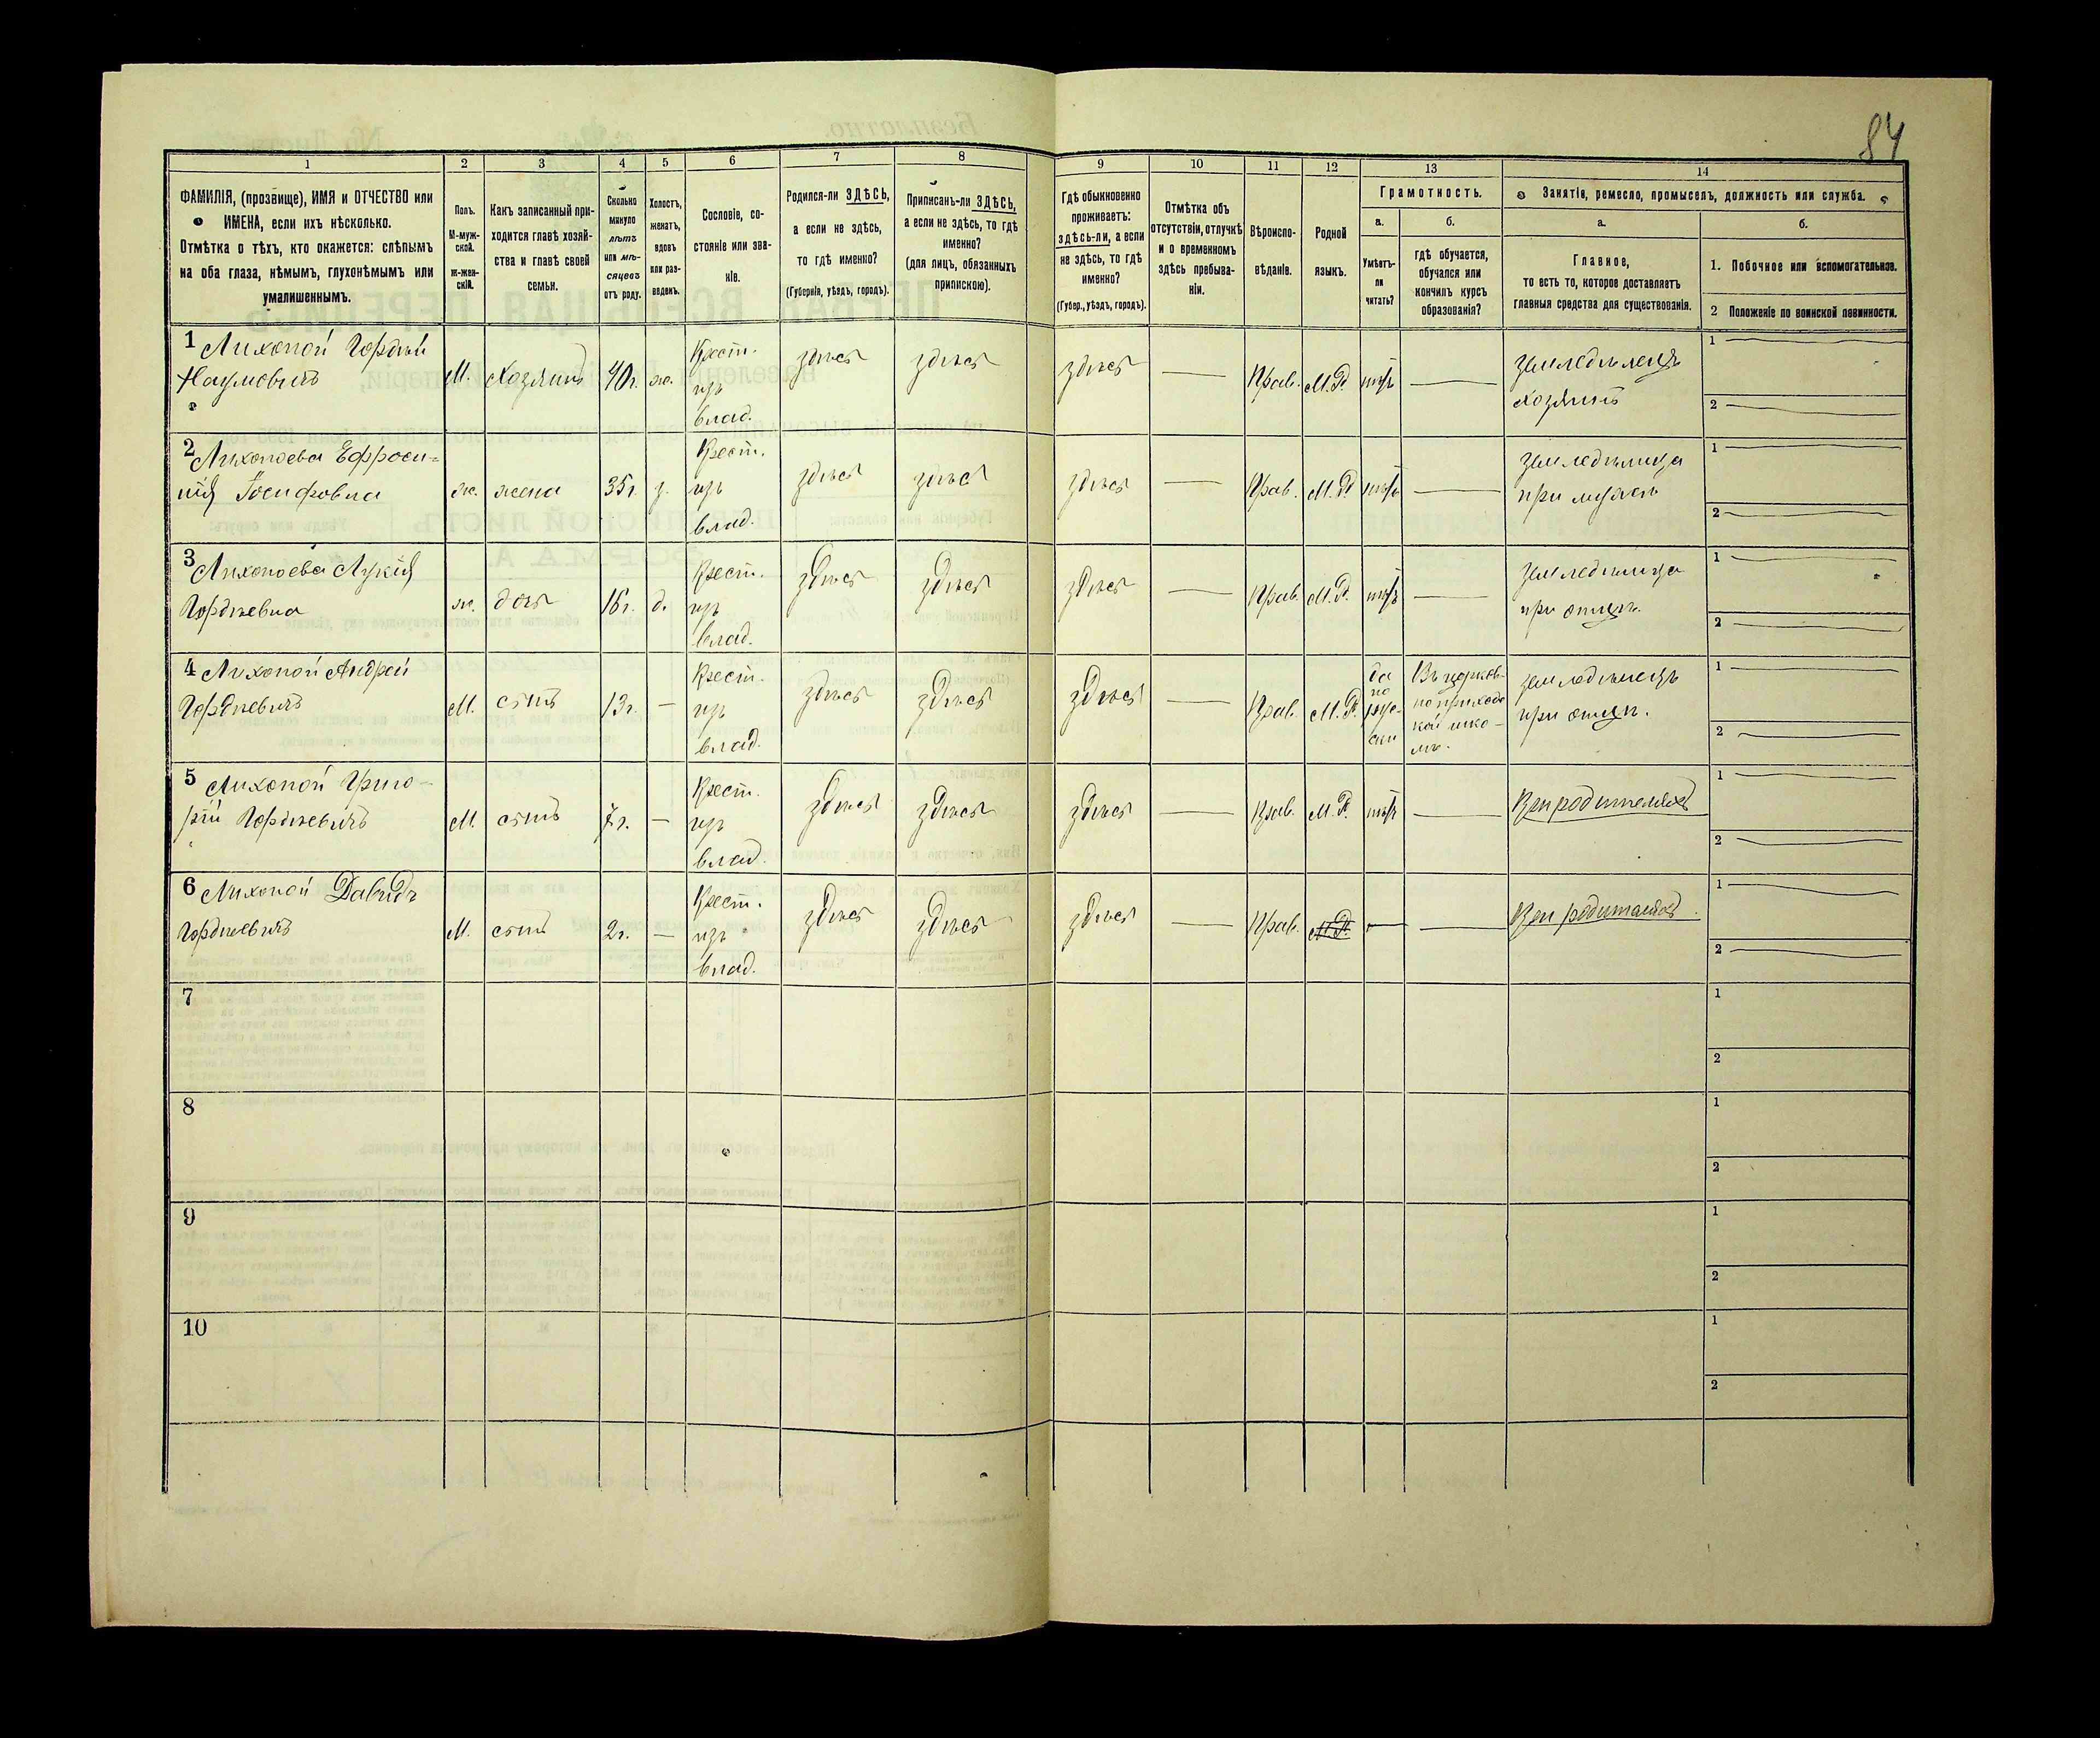 84
1
2
3
4
5
6
7
8
9
10
11
12
13
14
ФАМИЛІЯ, (прозвище), ИМЯ и ОТЧЕСТВО или
ИМЕНА, если ихъ нѣсколько.
Отмѣтка о тѣхъ, кто окажется: слѣпымъ
на оба глаза, нѣмымъ, глухонѣмымъ или
умалишеннымъ.
Полъ.
М-муж-
ской.
Ж-жен-
скій.
Какъ записанный при-
ходится главѣ хозяй-
ства и главѣ своей
семьи.
Сколько
минуло
лѣтъ
или мѣ-
сяцевъ
отъ роду.
Холостъ,
женатъ,
вдовъ
или раз-
веденъ.
Сословіе, со-
стояніе или зва-
ніе.
Родился-ли ЗДѢСЬ,
а если не здѣсь,
то гдѣ именно?
(Губернія, уѣздъ, городъ).
Приписанъ-ли ЗДѢСЬ,
а если не здѣсь, то гдѣ
именно?
(для лицъ, обязанныхъ
припискою).
Гдѣ обыкновенно
проживаетъ:
здѣсь-ли, а если
не здѣсь, то гдѣ
именно?
(Губер., уѣздъ, городъ).
Отмѣтка объ
отсутствіи, отлучкѣ
и о временномъ
здѣсь пребыва-
ніи.
Вѣроиспо-
вѣданіе.
Родной
языкъ.
Грамотность.
а.
Умѣетъ-
ли
читать?
б.
гдѣ обучается,
обучался или
кончилъ курсъ
образованія?
Занятія, ремесло, промыселъ, должность или служба.
а.
Главное,
то есть то, которое доставляетъ
главныя средства для существованія.
б.
1. Побочное или вспомогательное.
2 Положеніе по воинской повинности.
1 Лихопой Гордѣй
Наумовичъ
М.
Хозяинъ
40г.
ж.
Крест.
изъ
влад.
здѣсь
здѣсь
здѣсь
Прав.
М.Р.
нѣтъ
земледѣлецъ
хозяинъ
1
2
2 Лихопоева Ефроси=
нія Іосифовна
ж.
жена
35г.
з.
Крест.
изъ
влад.
здѣсь
здѣсь
здѣсь
Прав.
М.Р.
нѣтъ
земледѣлица
при мужѣ
1
2
3 Лихопоева Лукія
Гордѣевна
ж.
дочь
16г.
д.
Крест.
изъ
влад.
здѣсь
здѣсь
здѣсь
Прав.
М.Р.
нѣтъ
земледѣлица
при отцѣ.
1
2
4 Лихопой Андрей
Гордѣевичъ
М.
сынъ
13г.
Крест.
изъ
влад.
здѣсь
здѣсь
здѣсь
Прав.
М.Р.
да
по
рус-
ски
Въ церков-
но приходс
кой шко-
лѣ.
земледѣлецъ
при отцѣ.
1
2
5 Лихопой Григо-
рій Гордѣевичъ
М.
сынъ
7г.
Крест.
изъ
влад.
здѣсь
здѣсь
здѣсь
Прав.
М.Р.
нѣтъ
При родителяхъ
1
2
6 Лихопой Давидъ
Гордѣевичъ
М.
сынъ
2г.
Крест.
изъ
влад.
здѣсь
здѣсь
здѣсь
Прав.
М.Р.
При родителяхъ.
1
2
7
1
2
8
1
2
9
1
2
10
1
2